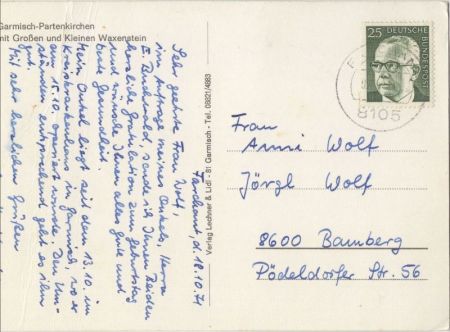 Garmisch-Partenkirchen
mit Großen und Kleinen Waxenstein
Farchant d. 18.10.71
Sehr geehrte Frau Wolf,
im Auftrage meines Onkels, Herrn
E. Buchwald, sende ich Ihnen Beiden
herzliche Gratulation zum Geburtstag
und wünsche Ihnen alles Gute und
beste Gesundheit.
Mein Onkel liegt seit dem 13.10. im
Kreiskrankenhaus in Garmisch, wo er
am 15.10. operiert wurde. Den Um-
ständen entsprechend geht es ihm
gut.
Mit sehr herzlichen Grüßen
Verlag Lechner & Lidl · 81 Garmisch · Tel. 08821/4883
25
DEUTSCHE
BUNDESPOST
8105
Frau
Anni Wolf
Jörgl Wolf
8600 Bamberg
Pödeldorfer Str. 56